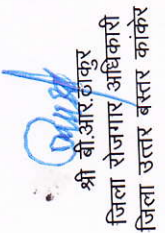 श्री बी.आर.ठाकुर
जिला रोजगार अधिकारी
जिला उत्तर बस्तर कांकेर